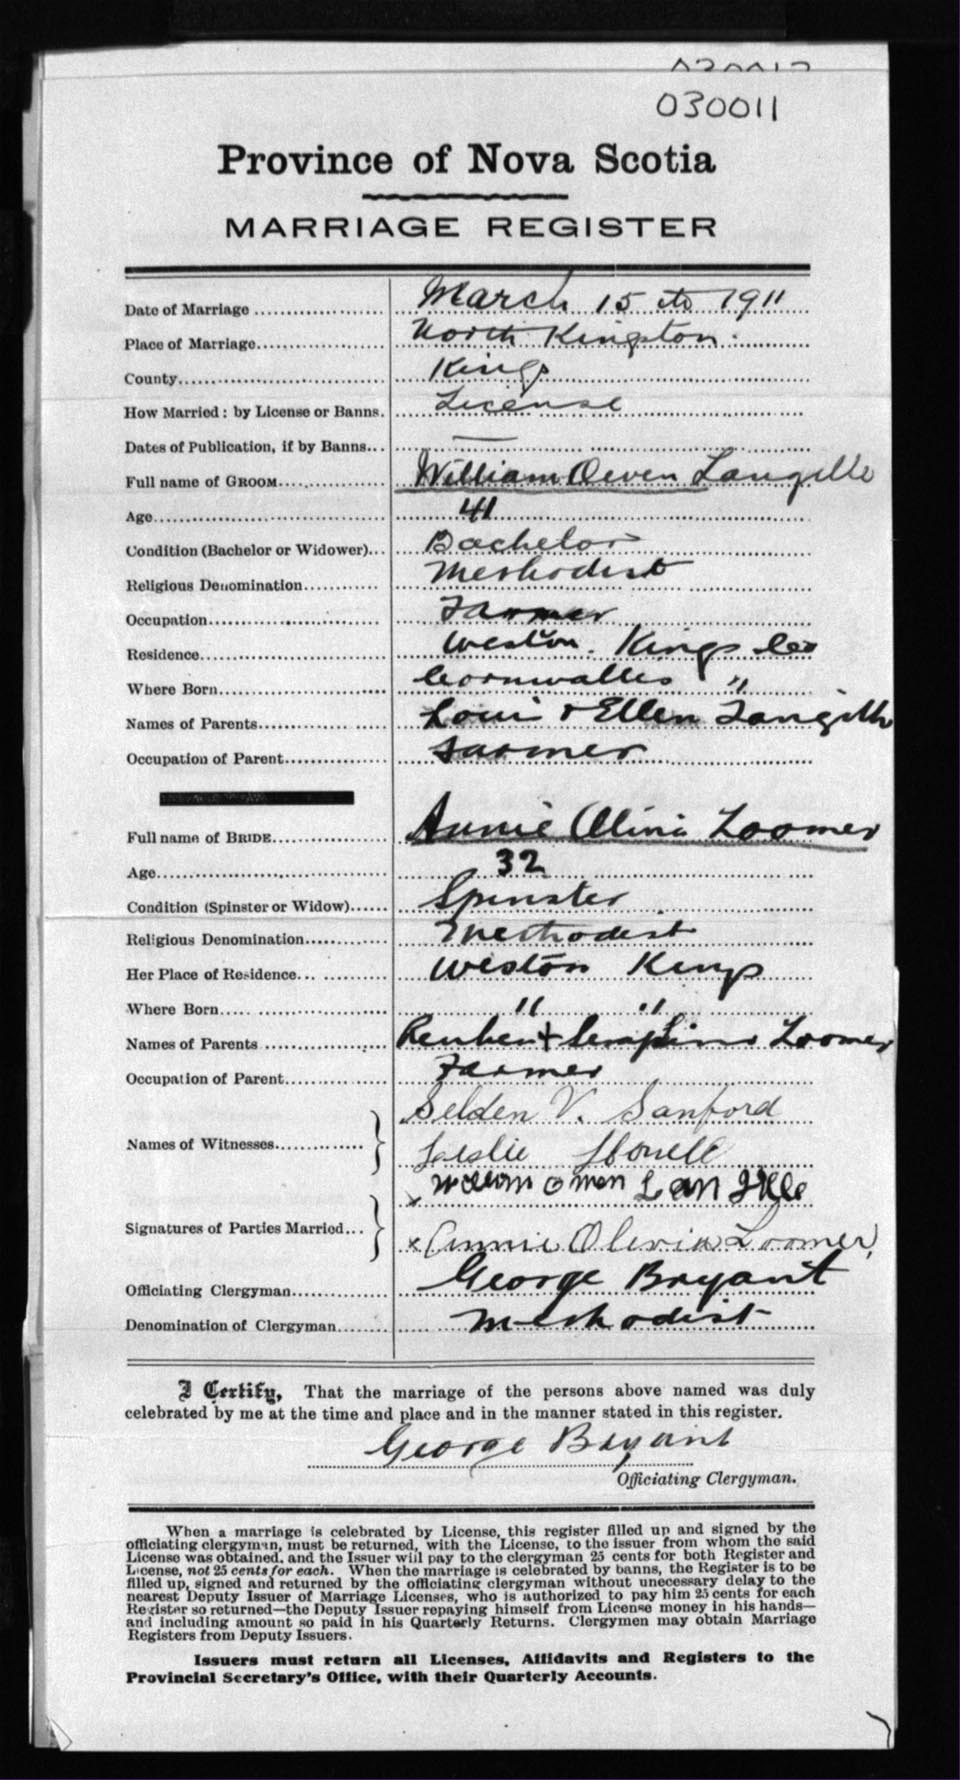 030011
Province of Nova Scotia
MARRIAGE REGISTER
Date of Marriage March 15 th 1911
Place of Marriage North Kingston.
County Kings
How Married: by License or Banns. License
Dates of Publication, if by Banns —
Full name of GROOM William Owen Langille
Age 41
Condition (Bachelor or Widower) Bachelor
Religious Denomination Methodist
Occupation Farmer
Residence Weston. Kings Co
Where Born Cornwallis "
Names of Parents Loui & Ellen Langille
Occupation of Parent Farmer
Full name of BRIDE Annie Olivia Loomer
Age 32
Condition (Spinster or Widow) Spinster
Religious Denomination Methodist
Her Place of Residence Weston Kings
Where Born " "
Names of Parents Reuben + Loomer
Occupation of Parent Farmer
Selden V. Sanford
Names of Witnesses
Leslie
x William Owen Langille
Signatures of Parties Married
x Annie Olivia Loomer,
Officiating Clergyman George Bryant
Denomination of Clergyman Methodist
I Certify, That the marriage of the persons above named was duly
celebrated by me at the time and place and in the manner stated in this register.
George Bryant
Officiating Clergyman.
When a marriage is celebrated by License, this register filled up and signed by the
officiating clergyman, must be returned, with the License, to the issuer from whom the said
License was obtained, and the Issuer will pay to the clergyman 25 cents for both Register and
License, not 25 cents for each. When the marriage is celebrated by banns, the Register is to be
filled up, signed and returned by the officiating clergyman without unecessary delay to the
nearest Deputy Issuer of Marriage Licenses, who is authorized to pay him 25 cents for each
Register so returned—the Deputy Issuer repaying himself from License money in his hands—
and including amount so paid in his Quarterly Returns. Clergymen may obtain Marriage
Registers from Deputy Issuers.
Issuers must return all Licenses, Affidavits and Registers to the
Provincial Secretary's Office, with their Quarterly Accounts.